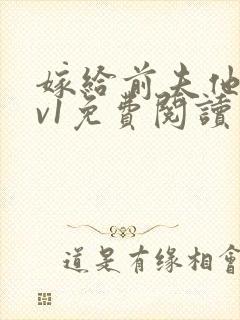 嫁給前夫他
v1免費閱讀
道是有缘相會